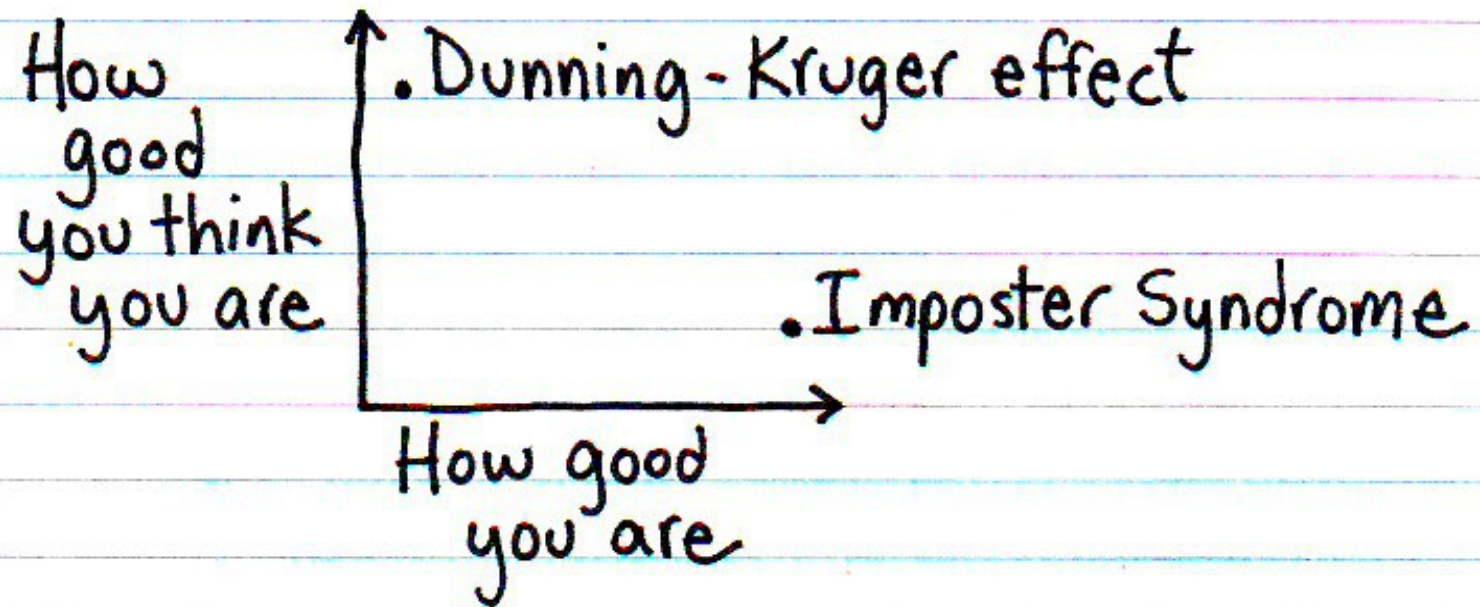 How
good
you think
you are
.Dunning-Kruger effect
.Imposter Syndrome
How good
you are